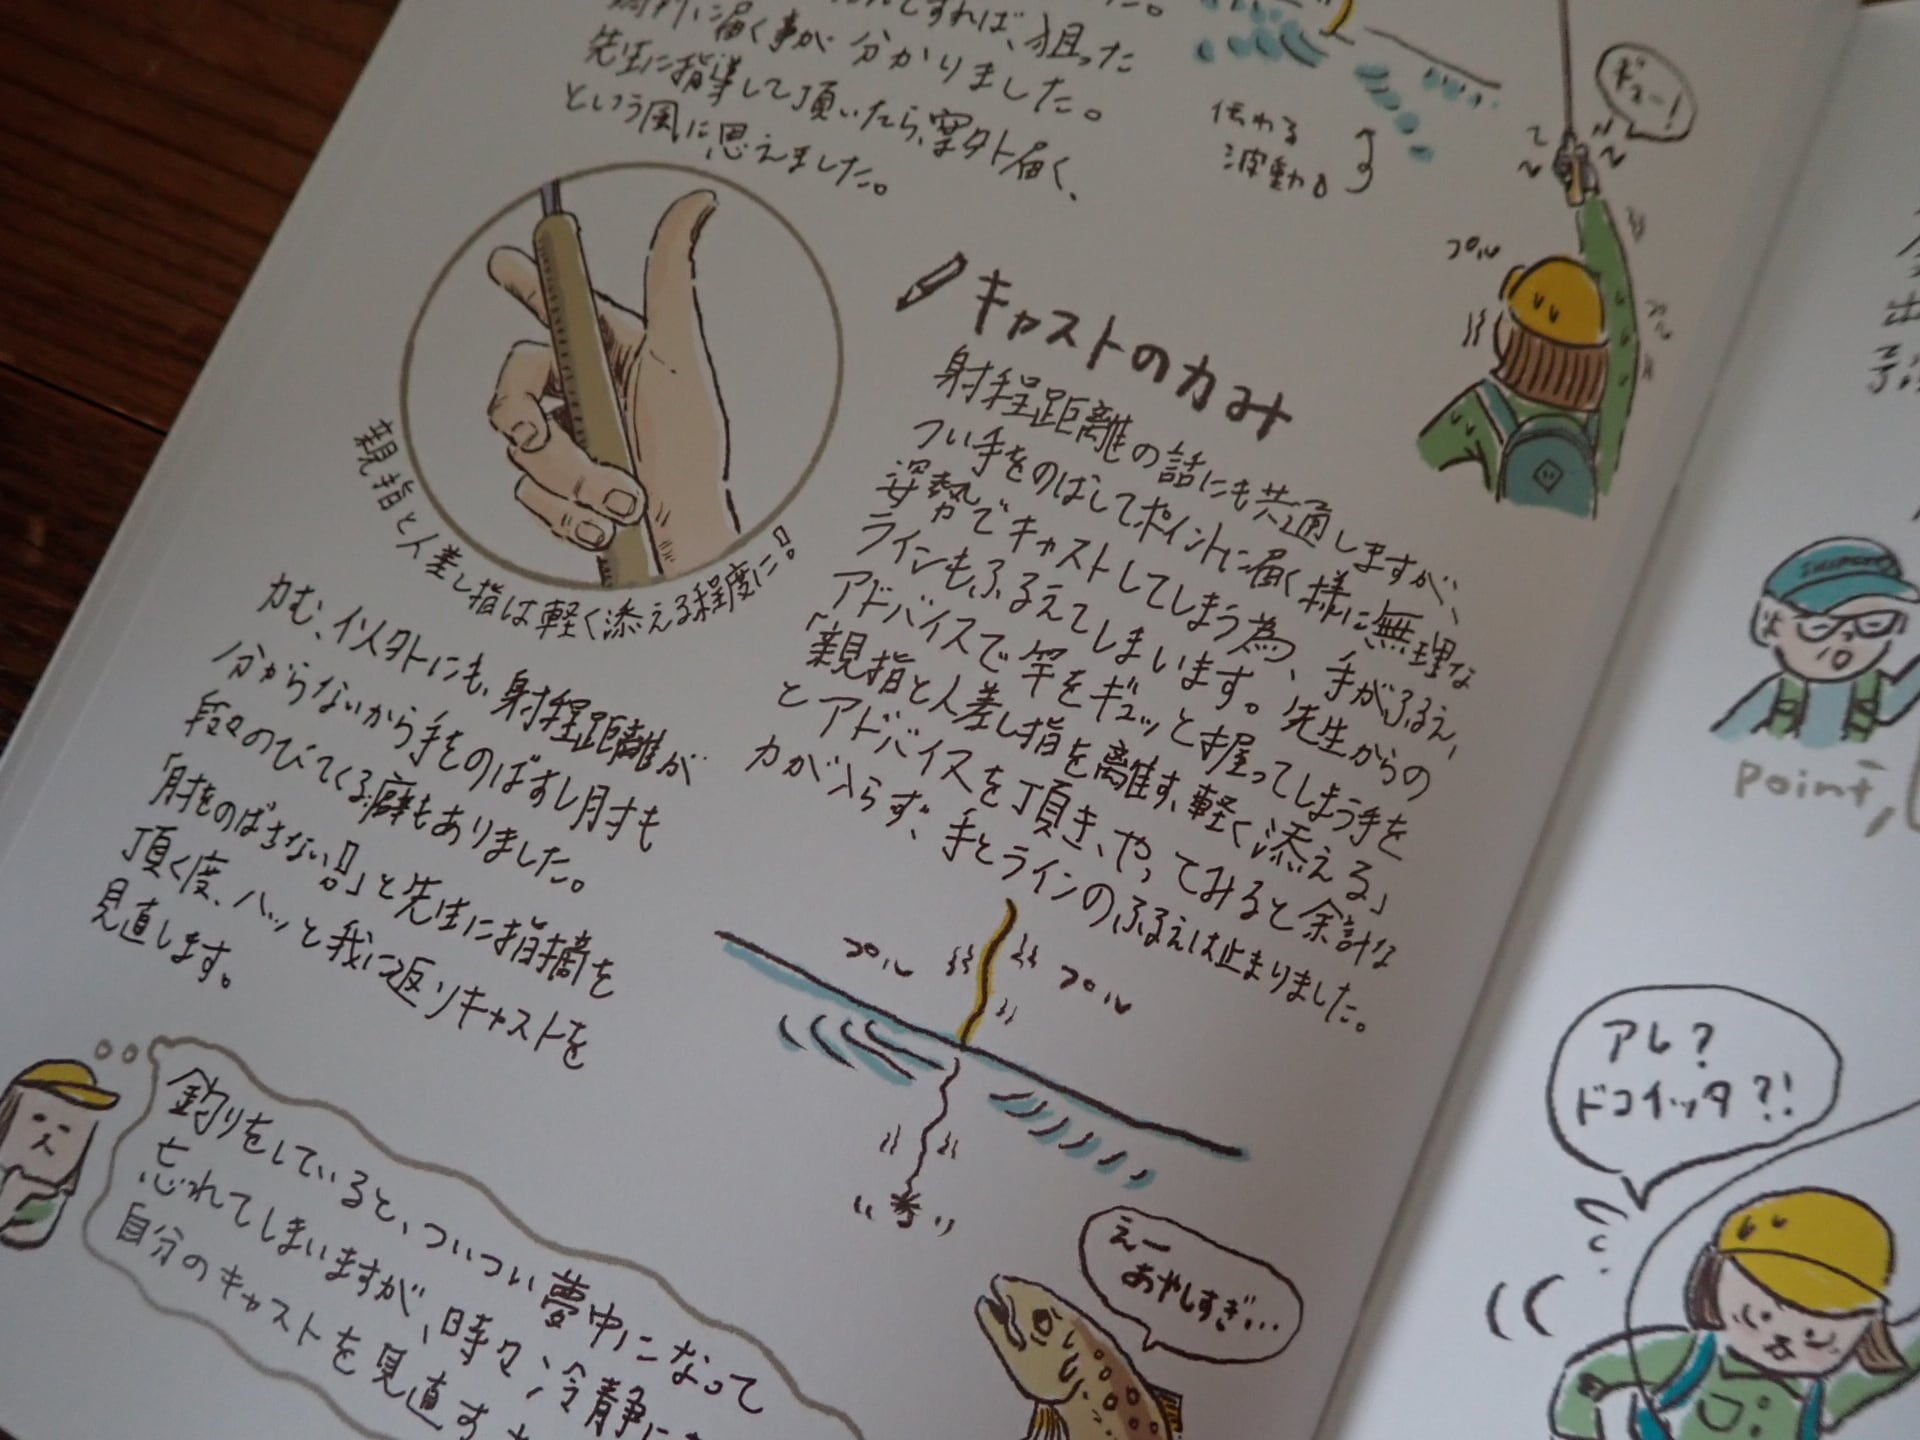 すれば、狙った
に届く事が分かりました。
先生に指導して頂いたら、案外届く、
という風に思えました。
伝わる
波動⇩
ギュー!
プル
キャストの力み
射程距離の話にも共通しますが、
つい手をのばしてポイントに届く様に無理な
姿勢でキャストしてしまう為、手がふるえ、
ラインもふるえてしまいます。先生からの
アドバイスで竿をギュッと握ってしまう手を
「親指と人差し指を離す、軽く添える」
とアドバイスを頂き、やってみると余計な
力が入らず、手とラインのふるえは止まりました。
親指と人差し指は軽く添える程度に!
力む、以外にも、射程距離が
分からないから手をのばすし肘も
段々のびてくる癖もありました。
「肘をのばさない!!」と先生に指摘を
頂く度、ハッと我に返りキャストを
見直します。
プル
プル
釣りをしていると、ついつい夢中になって
忘れてしまいますが、時々冷静に
自分のキャストを見直す
えー
あやしすぎ…
point,
アレ?
ドコイッタ?!